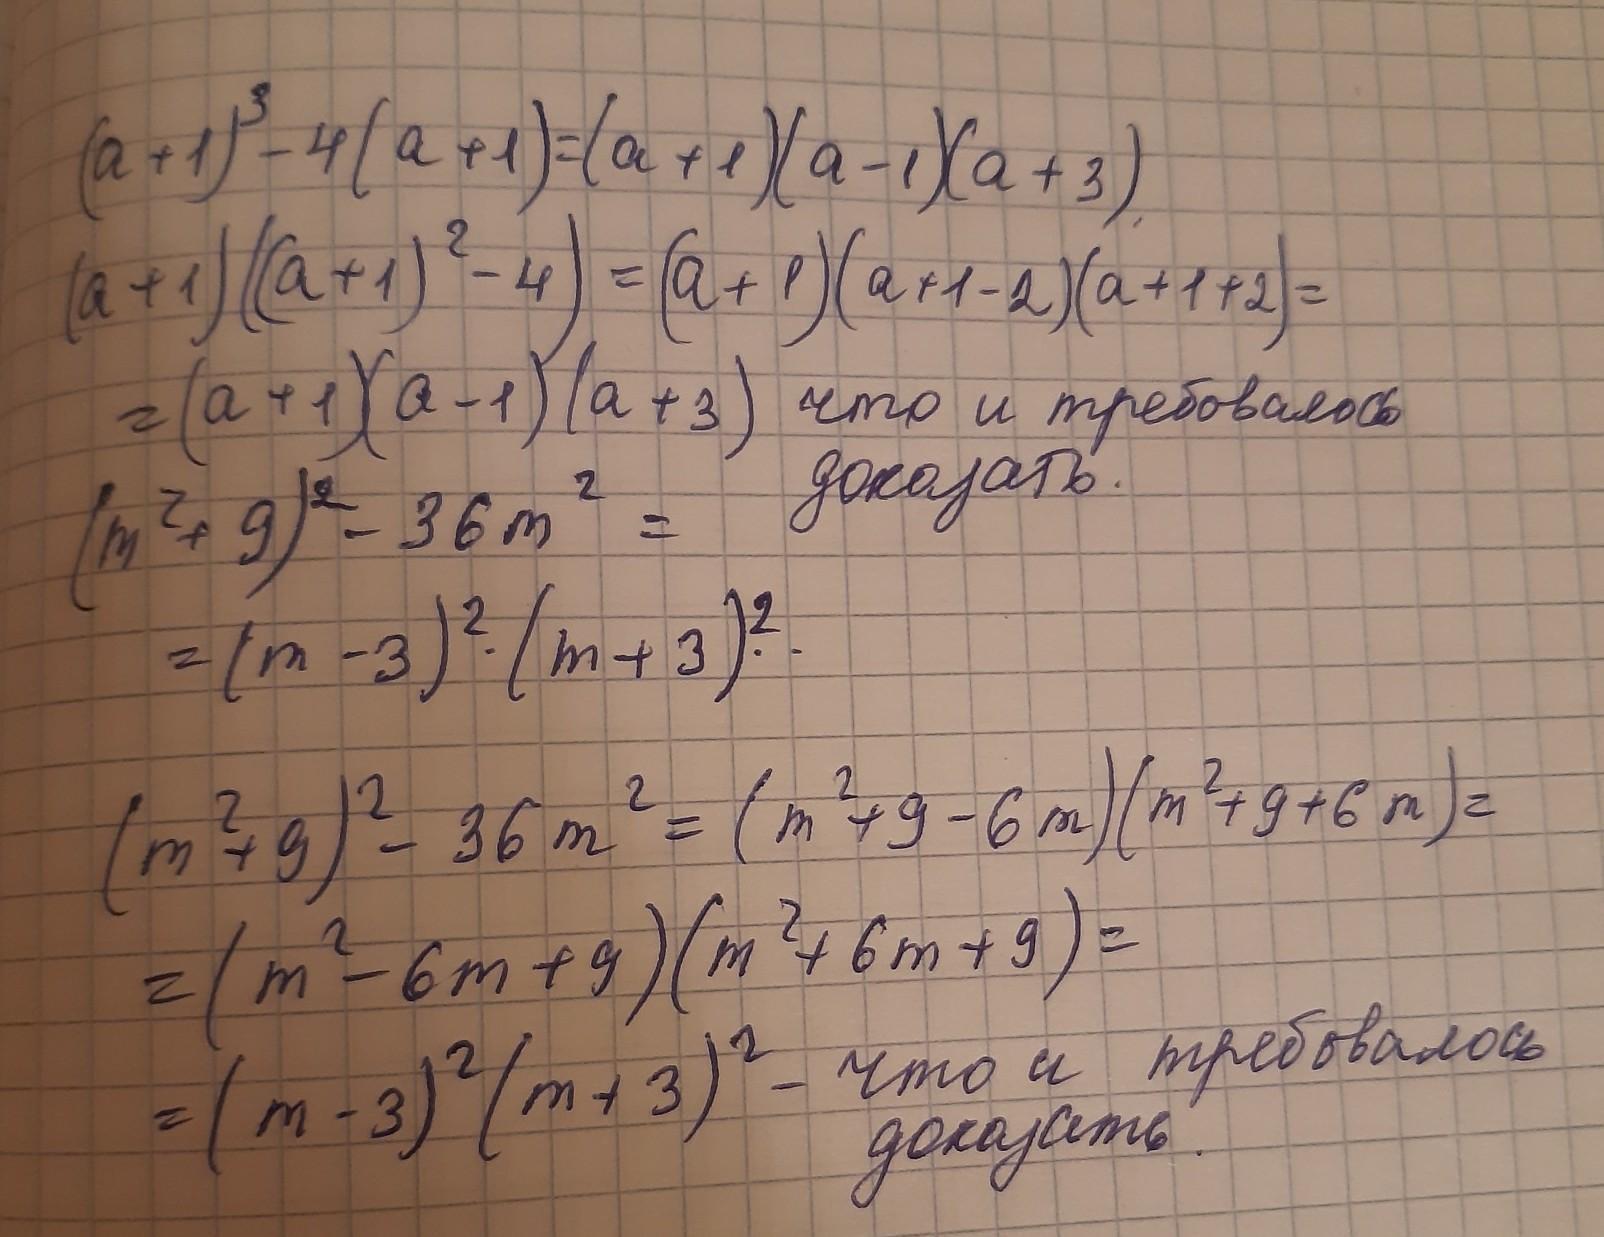 (a+1)³-4(a+1)=(a+1)(a-1)(a+3).
(a+1)((a+1)²-4)=(a+1)(a+1-2)(a+1+2)=
=(a+1)(a-1)(a+3) что и требовалось
доказать.
(m²+9)²-36m²=
=(m-3)²·(m+3)²..
(m²+9)²-36m²=(m²+9-6m)(m²+9+6m)=
=(m²-6m+9)(m²+6m+9)=
=(m-3)²(m+3)²- что и требовалось
доказать.